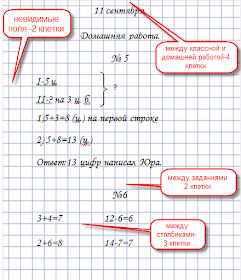 11 сентября.
невидимые
поля -2 клетки
Домашняя работа.
№ 5
между классной и
домашней работой-4
клетки
I-5 ц.
II-? на 3 ц. б.
?
1)5+3=8 (ц.) на второй строке
2) 5+8=13 (ц.)
Ответ:13 цифр написал Юра.
между заданиями
2 клетки
№6
3+4=7 12-6=6
между
столбиками-
3 клетки
2+6=8 14-7=7